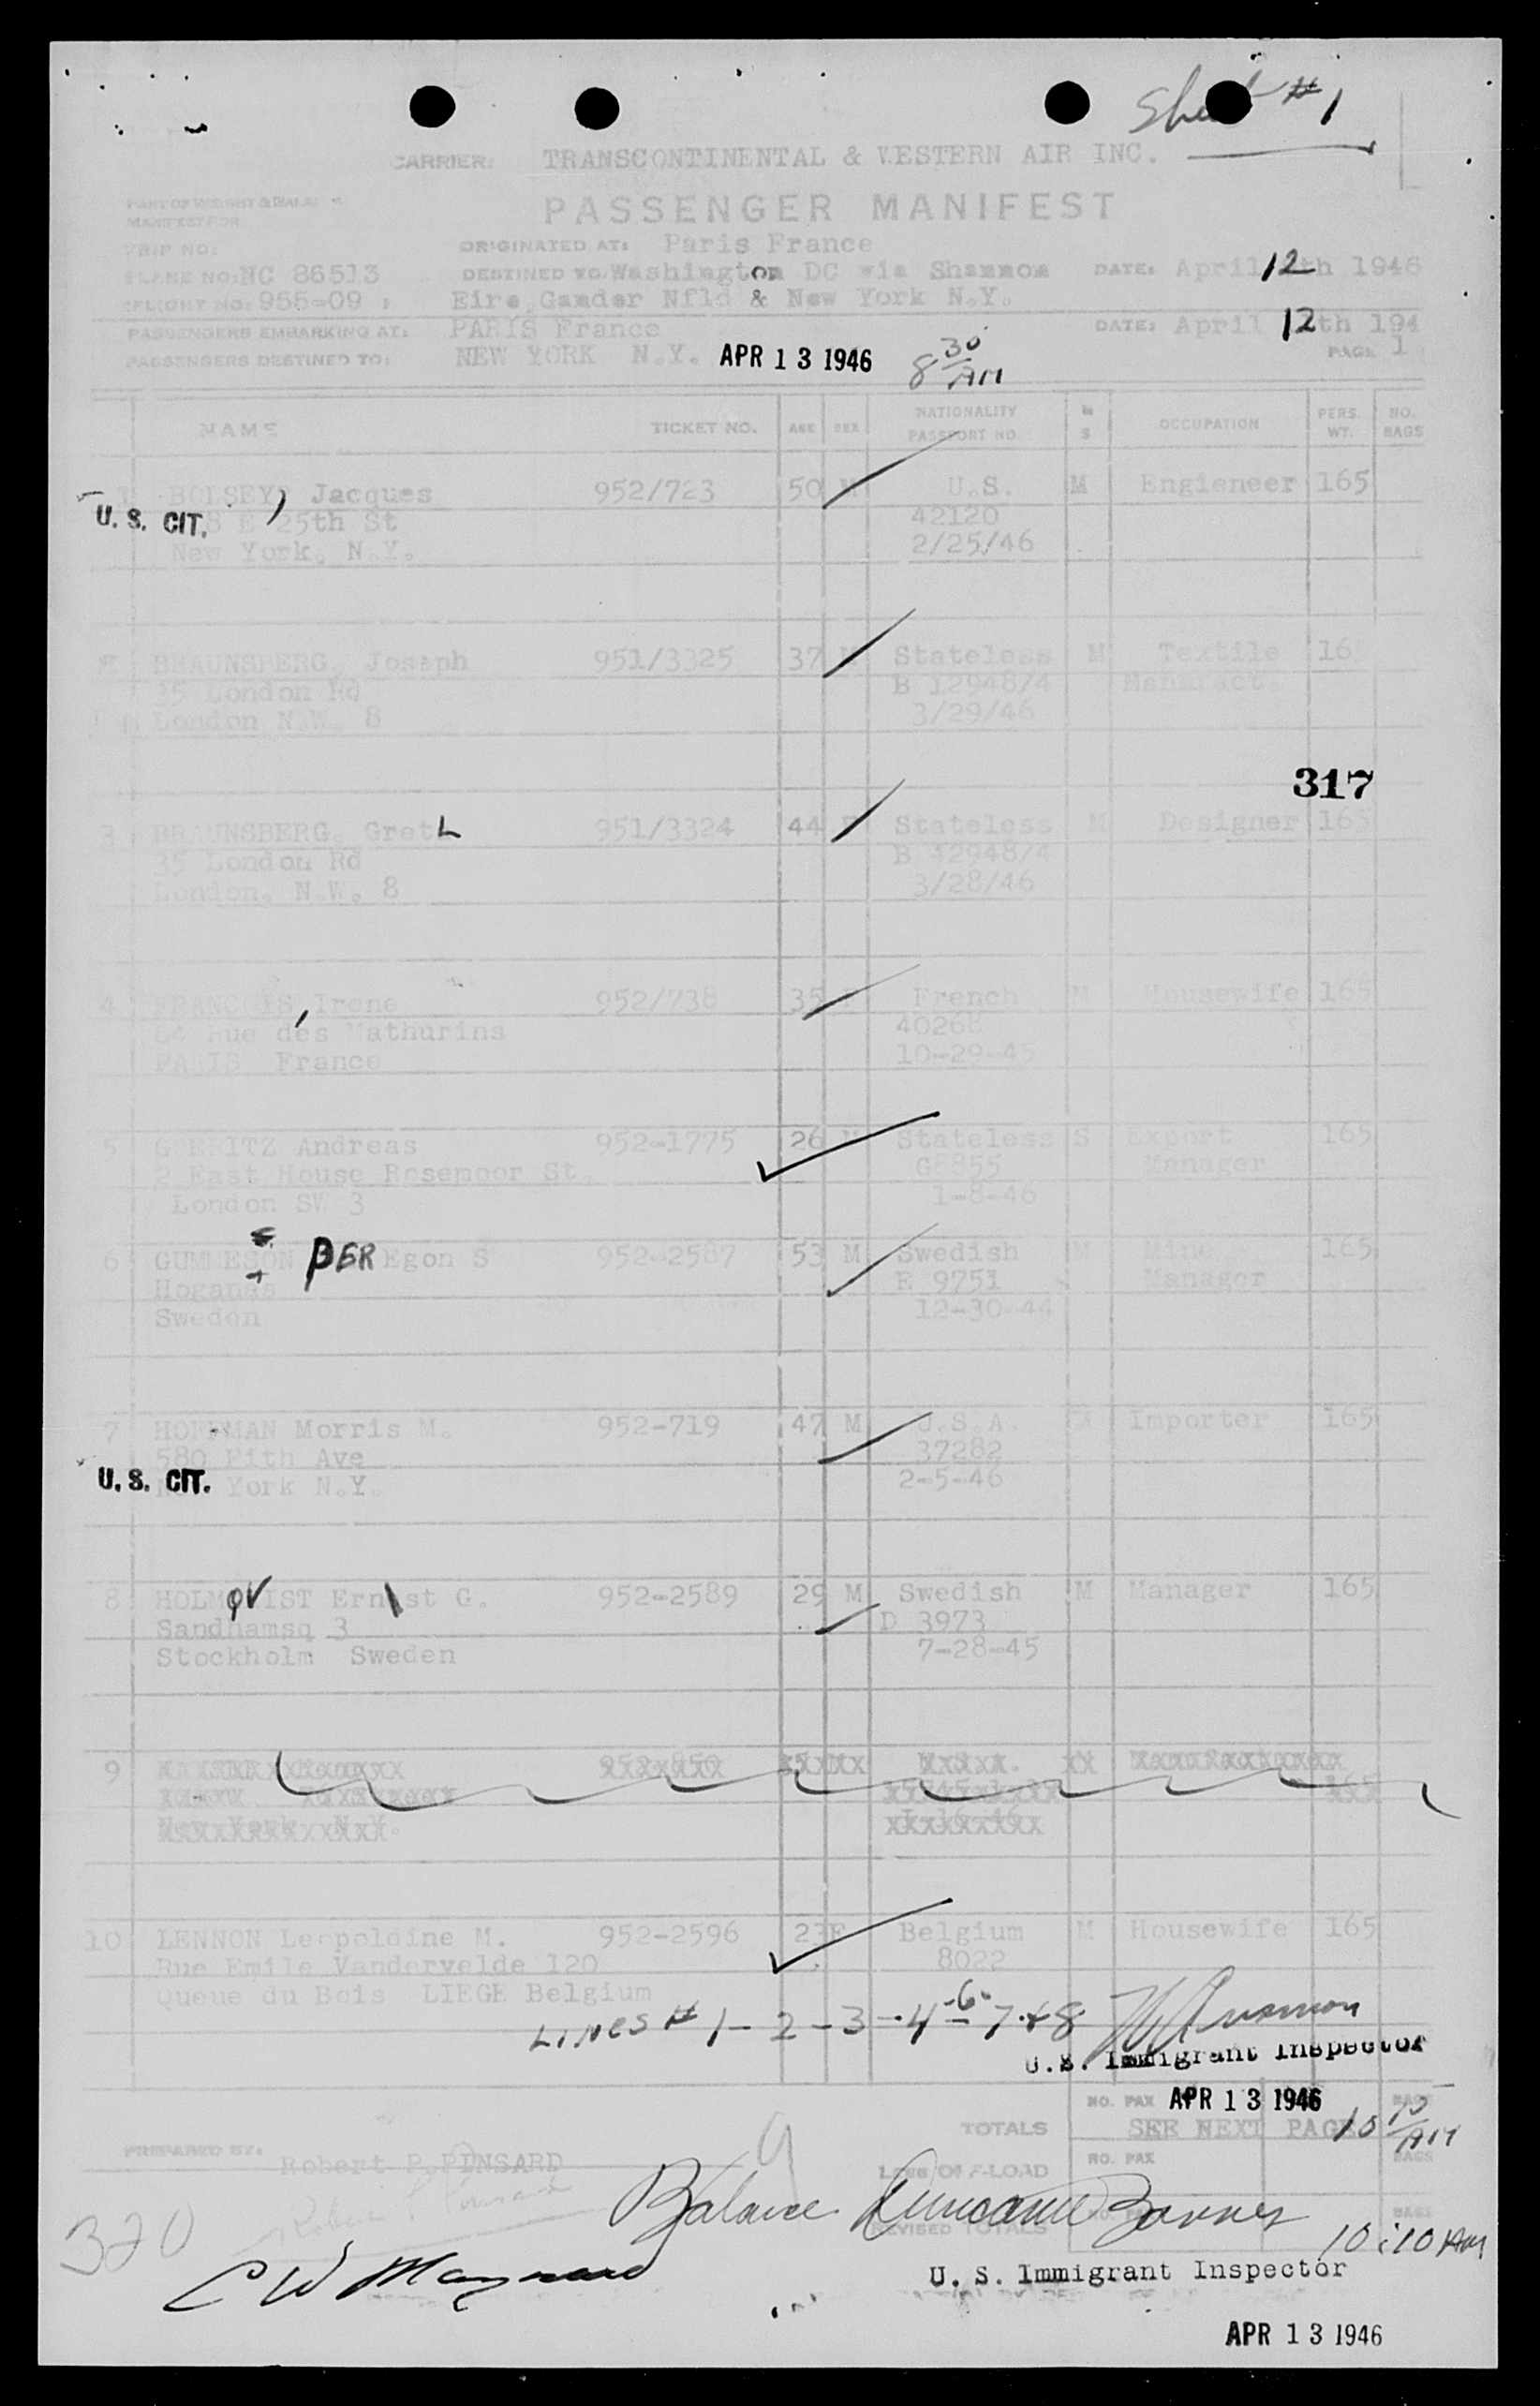 Sheet #1
CARRIER: TRANSCONTINENTAL & WESTERN AIR INC.
PART OF WEIGHT & BALANCE
MANIFEST FOR
PASSENGER MANIFEST
TRIP NO:
ORIGINATED AT: Paris France
PLANE NO: NC 86513 DESTINED TO: Washington DC via Shannon DATE: April 12th 1946
FLIGHT NO: 955-09 Eire, Gander Nfld & New York N.Y.
PASSENGERS EMBARKING AT: PARIS France DATE: April 12th 194
PASSENGERS DESTINED TO: NEW YORK N.Y. APR 13 1946 8 30 AM PAGE 1
NAME TICKET NO. AGE SEX NATIONALITY PASSPORT NO M S OCCUPATION PERS. WT. NO. BAGS
1 BOLSEY, Jacques 952/723 50 M U.S. M Engieneer 165
U.S. CIT. E 25th St 42120
New York, N.Y. 2/25/46
BRAUNSBERG, Joseph 951/3325 37 M Stateless M Textile 16
35 London Rd B 129487/4 Manufact.
London N.W. 8 3/29/46
317
3 BRAUNSBERG, GretL 951/3324 44 F Stateless M Designer 165
35 London Rd
London, N.W. 8 3/28/46
4 FRANCOIS, Irene 952/738 35 F French M Housewife 165
64 Rue des Mathurins 40268
PARIS France 10-29-45
5 Andreas 952-1775 26 M Stateless S Export 165
2 East House Rosemoor St. G5855 Manager
London SW 3 1-8-46
6 GUMMESON PER Egon S 952-2587 53 M Swedish M Mine 165
Hoganas E 9751 Manager
Sweden 12-30-44
7 HOFFMAN Morris M. 952-719 47 M U.S.A. M Importer 165
580 Fith Ave 37282
U.S. CIT. York N.Y. 2-5-46
8 HOLMQVIST Ernst G. 952-2589 29 M Swedish M Manager 165
Sandhamsg 3 D 3973
Stockholm Sweden 7-28-45
9
New York N.Y.
10 LENNON Leopoldine M. 952-2596 23 F Belgium M Housewife 165
Rue Emile Vandervelde 120 8022
Queue du Bois LIEGE Belgium
LINES # 1-2-3-4-6-7+8
U.S. Immigrant Inspector
NO. PAX APR 13 1946 BAGS
TOTALS SEE NEXT PAGE 10 10 AM
PREPARED BY: Robert P. PINSARD
LESS OFF-LOAD NO. PAX BAGS
9
Balance
REVISED TOTALS NO. PAX BAGS
320
10:10 AM
C W Maynard
U. S. Immigrant Inspector
APR 13 1946